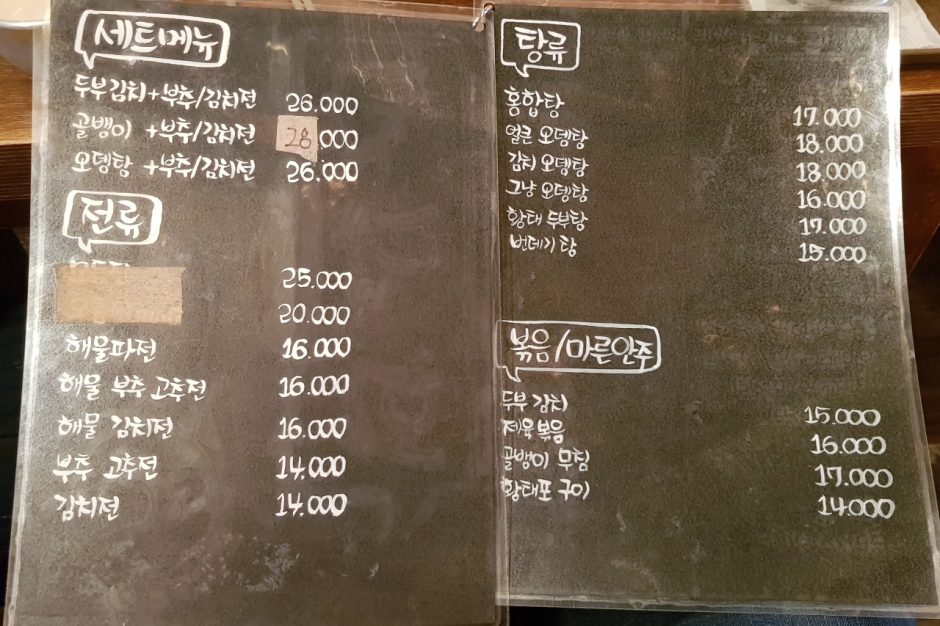 세트메뉴
두부김치+부추/김치전 26.000
골뱅이 +부추/김치전 28.000
오뎅탕 +부추/김치전 26.000
전류
25.000
20.000
해물파전 16.000
해물 부추 고추전 16.000
해물 김치전 16.000
부추 고추전 14.000
김치전 14.000
탕류
홍합탕 17.000
얼큰 오뎅탕 18.000
김치 오뎅탕 18.000
그냥 오뎅탕 16.000
황태 두부탕 17.000
번데기 탕 15.000
볶음/마른안주
두부 김치 15.000
제육볶음 16.000
골뱅이 무침 17.000
황태포 구이 14.000